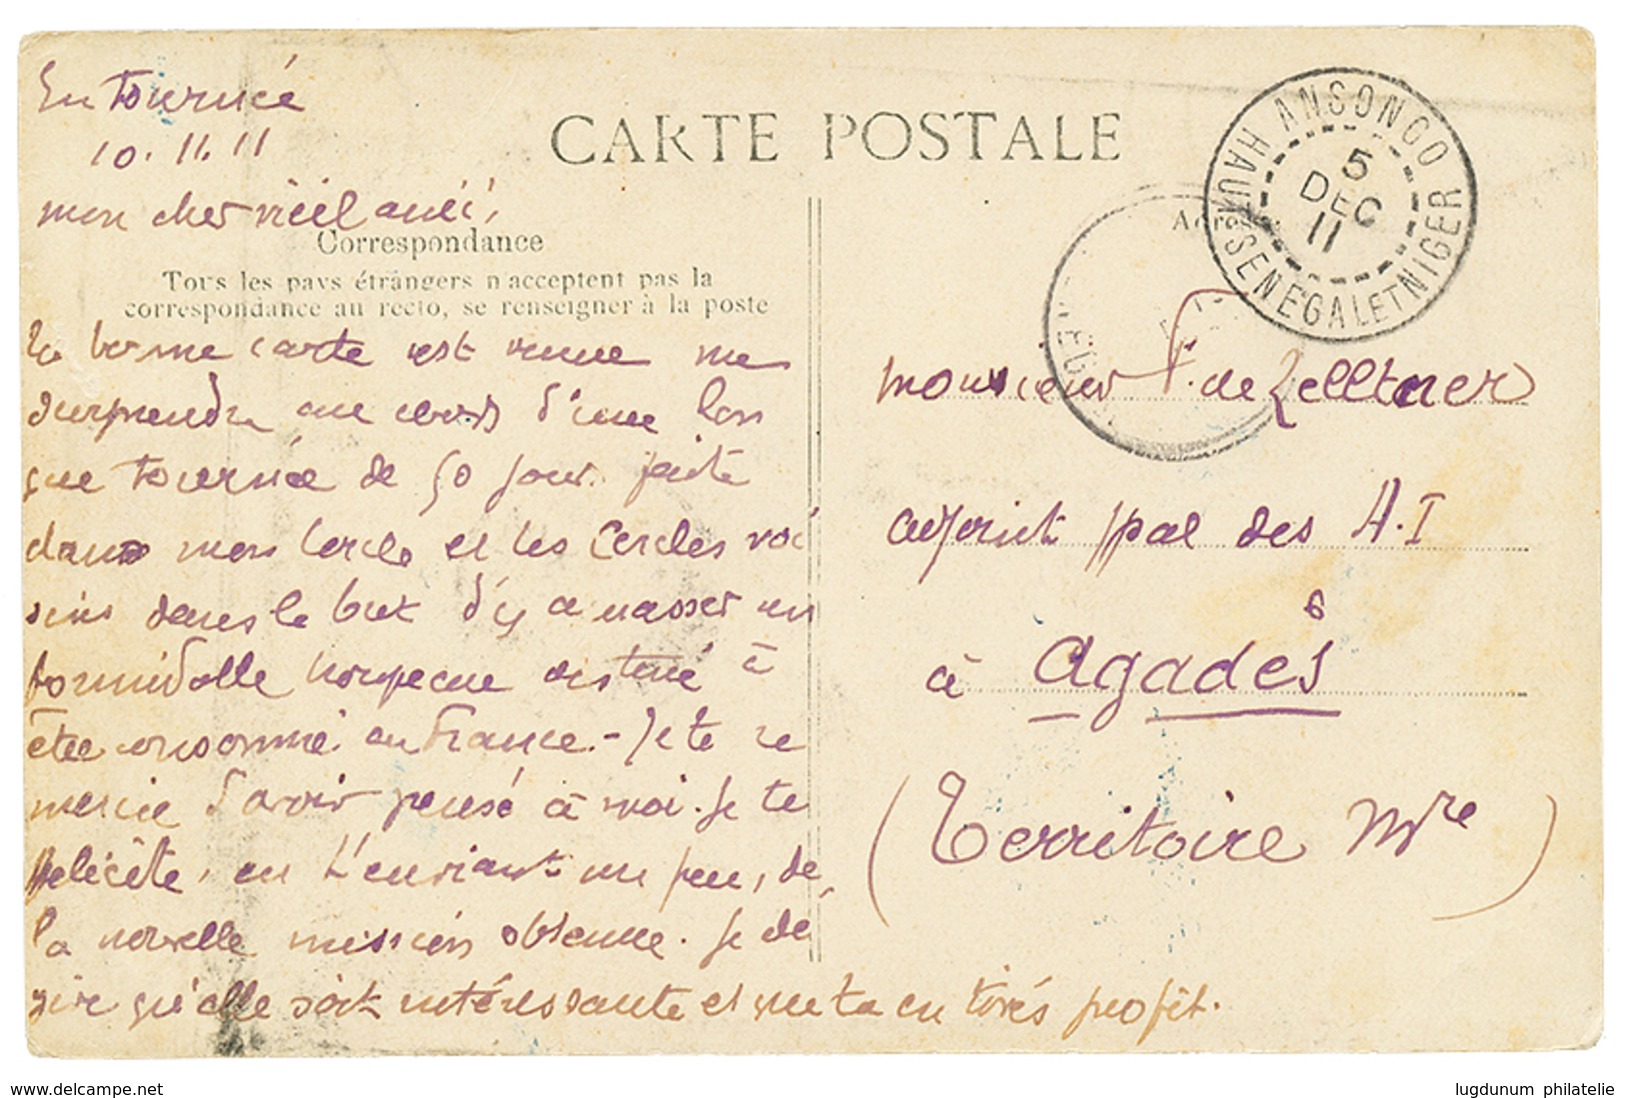 En tournée
10.11.11
mon cher vieil ami,
CARTE POSTALE
Correspondance
Tous les pays étrangers n'acceptent pas la
correspondance au recto, se renseigner à la poste
Ta bonne carte est venue me
surprendre au cours d'une lon
gue tournée de 50 jours faite
dans mon Cercle et les Cercles voi
sins dans le but d'y amasser un
formidable troupeau destiné à
être consommé en France. - Je te re
mercie d'avoir pensé à moi. Je te
félicite, en t'enviant un peu, de
la nouvelle mission obtenue. Je dé
sire qu'elle soit intéressante et que tu en tires profit.
ANSONGO
HAUT SENEGAL ET NIGER
5
DEC
11
Monsieur F. de Zelltner
adjoint ppal des A.I
à Agadès
(Territoire Mre)
www.delcampe.net
lugdunum philatelie